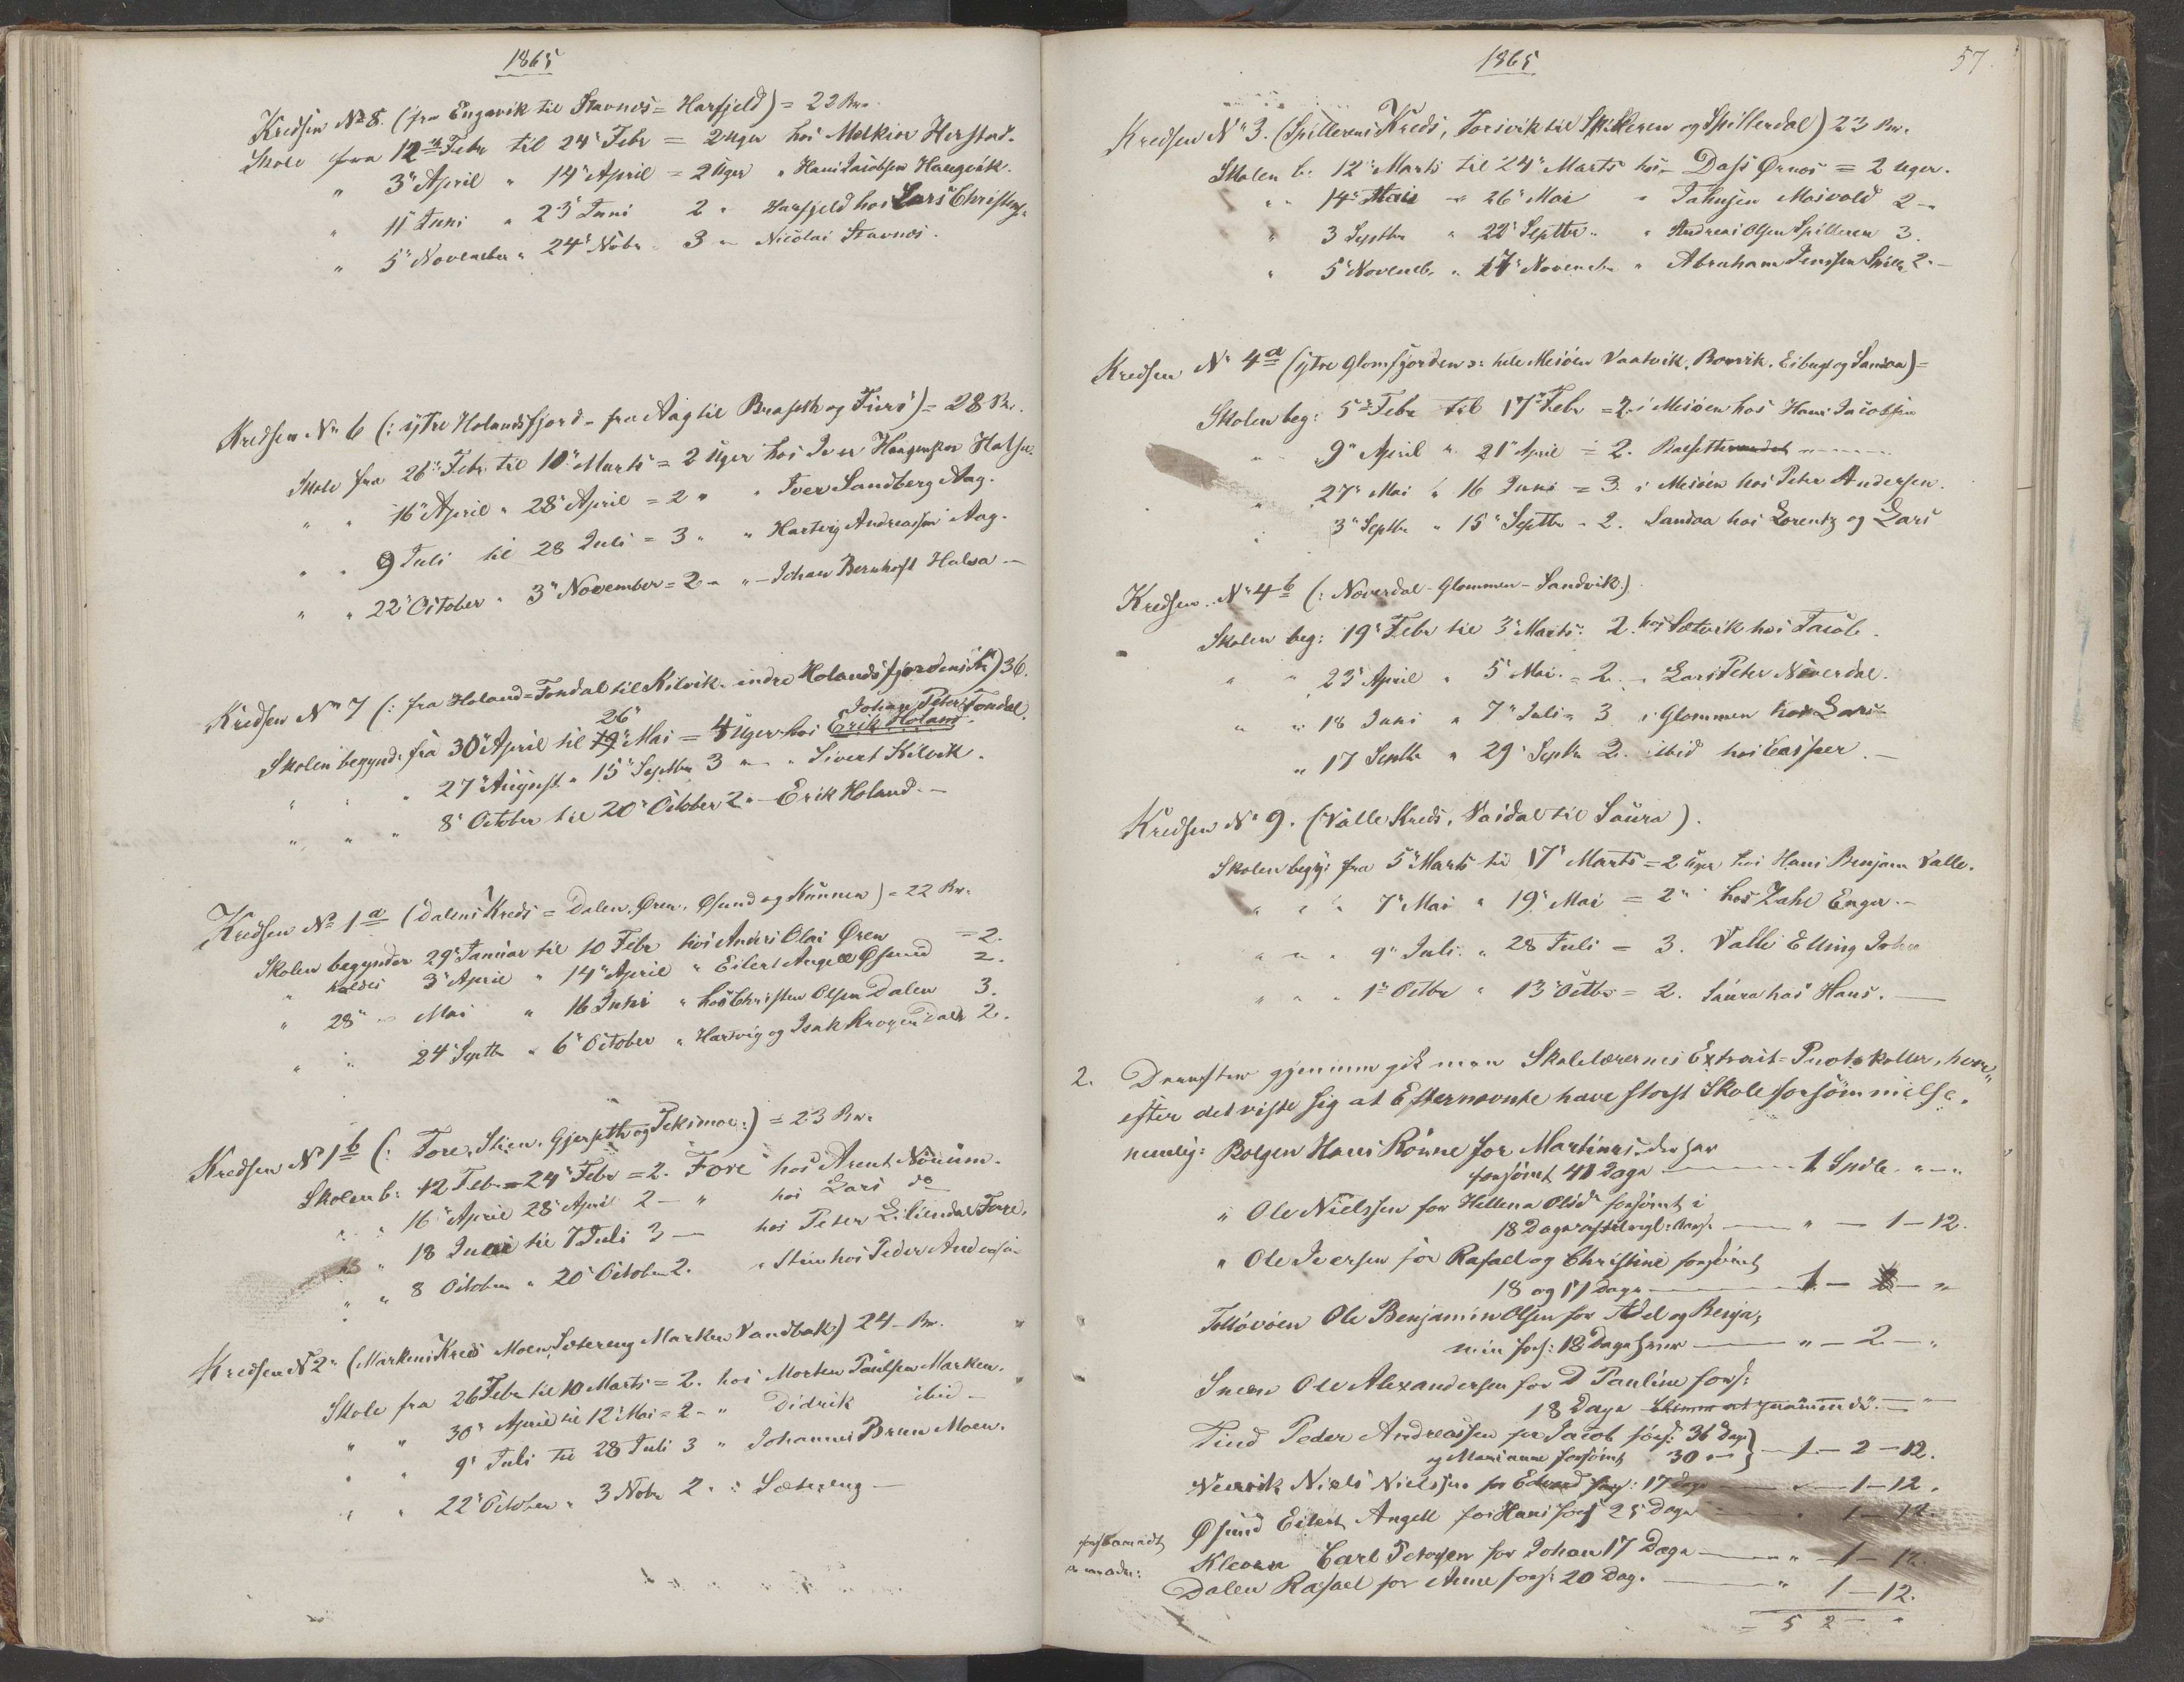 1865
Kredsen No 8. (fra Engavik til Stavnes = Harfjeld) = 22 Brn.
Skole fra 12te Febr til 24de Febr = 2 uger hos Melkior Herstad.
" 3de April " 14de April = 2 Uger " Hans Jacobsen Haugvik.
" 11 Juni " 23 Juni 2 " Harfjeld hos Lars Christens.
" 5 November " 24 Nobr 3 " Nicolai Stavnes.
Kredsen No 6 (: ytre Holandsfjord - fra Aag til Braseth og Furu) = 28 Br.
Skole fra 26de Febr til 10de Marts = 2 Uger hos Iver Haagensen Halsa.
" " 16de April " 28de April = 2 " " Iver Sandberg Aag.
" " 9 Juli til 28 Juli = 3 " " Hartvig Andreassen Aag.
" " 22de October " 3de November = 2 " " - Johan Bernhoft Halsa -
Kredsen No 7 (: fra Holand = Fondal til Kilvik. indre Holandsfjordens Kr) 36.
26 Johan Peter Fondal.
Skolen begynd. fra 30de April til 19 Mai = 4 Uger hos Erik Holand.
" " " 27 August " 15 Septbr 3 " " Sivert Kilvik.
" " " 8de October til 20de October 2 " - Erik Holand. -
Kredsen No 1a (Dalens Kreds = Dalen, Øren, Øsund og Kunnen) = 22 Brn.
Skolen begynder 29de Januar til 10 Febr hos Anders Olai Øren = 2.
" holdes 3de April " 14de April " Eilert Angell Øsund 2.
" 28 " Mai " 16 Juni " hos Christen Olsen Dalen 3.
" " 24 Septbr " 6 October " Hartvig og Isak Krogen Dalen 2.
Kredsen No 1b (: Fore, Stien, Gjerseth og Selsimoe:) = 23 Brn.
Skolen b: 12 Febr = 24 Febr = 2. Fore hos Arent Nouum.
" " 16de April 28 April 2 - " hos Lars do
" 18 Juni til 7 Juli 3 - hos Peter Liliendal Fore.
" " 8 October " 20 October 2. " Stien hos Peder Andersen
Kredsen No 2. (Markens Kreds Moen, Sætereng Marken Vandbak) 24 Brn.
Skole fra 26 Febr til 10 Marts = 2. hos Morten Paulsen Marken.
" " 30 April til 12 Mai = 2 - " Didrik ibid -
" " 9 Juli til 28 Juli 3 " Johannes Brun Moen.
" " 22 October " 3 Nobr 2 " : Sætereng -
1865
57.
Kredsen No 3. (Spillerens Kreds, Forsvik til Spilderen og Spillerdal) 23 Brn.
Skolen b. 12de Marts til 24de Marts hos Dass Ørnes = 2 uger.
" " 14de Mai " 26de Mai " Mosvold 2 -
" 3 Septbr " 22 Septbr " Andreas Olsen Spilleren 3.
" 5 Novemb. " 17 Novembr " Abraham Jenssen Spilln 2. -
Kredsen No 4a (ytre Glomfjorden o: hele Mesöen Vaatvik, Borsvik, Eiberg og Sandaa) =
Skolen beg: 5te Febr til 17de Febr = 2 i Mesöen hos Hans Jacobsen
" " 9de April " 21de April = 2.
" 27 Mai " 16 Juni = 3 i Mesöen hos Peter Andersen.
" 3de Septbr " 15de Septbr - 2. Sandaa hos Lorentz og Lars
Kredsen No 4b (: Neverdal - Glommen - Sandvik.)
Skolen beg: 19de Febr til 3de Marts 2. hos Sætvik hos Jacob.
" " 23 April " 5 Mai = 2. " Lars Peter Neverdal.
" " 18 Juni " 7de Juli = 3 i Glommen hos Lars
" 17 Septbr " 29 Septbr 2. ibid hos Casper. -
Kredsen No 9. (Valle Kreds, Vasdal til Saura).
Skolen begy: fra 5 Marts til 17de Marts = 2 Uger hos Hans Benjam Valle.
" " " 7de Mai " 19de Mai = 2 " hos Zahl Enga -
" " " 9de Juli " 28 Juli = 3. Valle Elling John
" " " 1ste Octbr " 13 Octbr = 2. Saura hos Hans. -
2. Dernæst gjennemgik man Skolelærernes Extract-Protokoller, hvor-
efter det viste sig at Efternævnte have störst Skoleforsömmelse,
nemlig: Bolgen Hans Rönne for Martinus, der har
forsömt 41 Dage - 1 Spdlr. " - "
" Ole Nielssen for Hellena Olsdr forsömt i
18 Dage - " - 1 - 12.
" Ole Iversen for Rafael og Christine forsömt
18 og 17 Dage - 1 - " - "
Ole Benjamin Olsen for Adel og Benja-
min fors: 18 Dage hver - " - 2 - "
Sneen Ole Alexandersen for D Pauline fors:
18 Dage
Tind Peder Andreassen for Jacob fors: 36 Dage
og Marianne forsömt 30 " - 1 - 2 - 12.
Neervik Niels Nielssen for Edvard fors: 17 Dage - " - 1 - 12.
Øsund Eilert Angell for Hans fors 25 Dage - " 1 - 12.
Kleven Carl Petersen for Johan 17 Dage - " 1 - 12.
Dalen Rafael for Anne fors: 20 Dag. - " 1 - 12.
= 5 2 - "